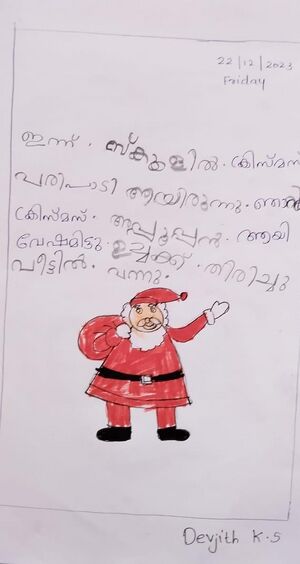 22/12/2023
Friday
ഇന്ന്. സ്കൂളിൽ. ക്രിസ്മസ്
പരിപാടി ആയിരുന്നു. ഞാൻ
ക്രിസ്മസ്. അപ്പൂപ്പൻ. ആയി
വേഷമിട്ടു. ഉച്ചക്ക്. തിരിച്ചു
വീട്ടിൽ. വന്നു.
Devjith K.S